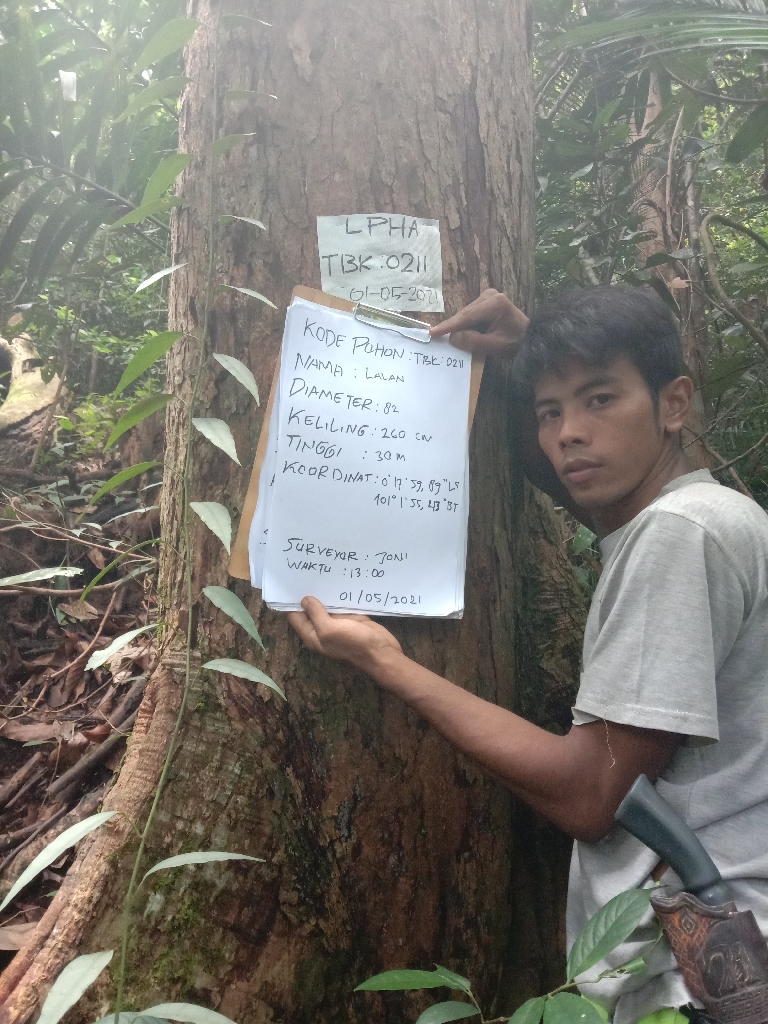 LPHA
TBK:0211
01-05-2021
KODE POHON : TBK:0211
NAMA : LALAN
DIAMETER : 82
KELILING : 260 CM
TINGGI : 30 M
KOORDINAT : 0°17'59,89"LS
101°1'55,43"BT
SURVEYOR : JONI
WAKTU : 13:00
01/05/2021